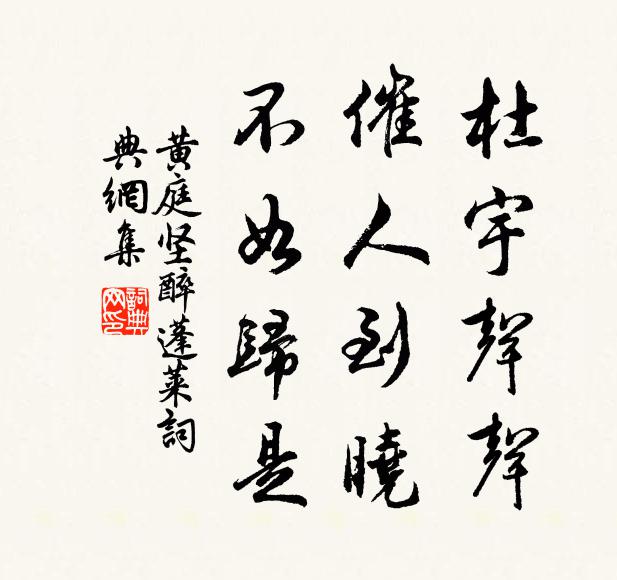 杜宇聲聲
催人到曉
不如歸是
黄庭坚醉蓬莱詞
典網集
詞典
网印